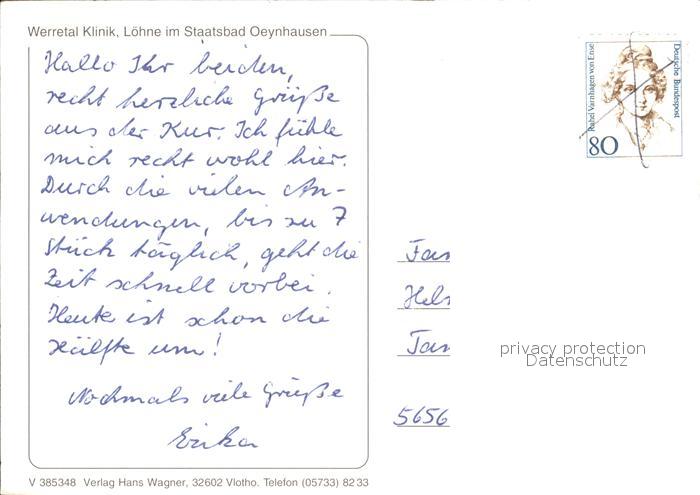 Werretal Klinik, Löhne im Staatsbad Oeynhausen
Hallo Ihr beiden,
recht herzliche Grüße
aus der Kur. Ich fühle
mich recht wohl hier.
Durch die vielen An-
wendungen, bis zu 7
Stück täglich, geht die
Zeit schnell vorbei.
Heute ist schon die
Hälfte um!
Nochmals viele Grüße
Erika
V 385348 Verlag Hans Wagner, 32602 Vlotho. Telefon (05733) 8233
Rahel Varnhagen von Ense
Deutsche Bundespost
80
Fas
Hels
Tan
5656
privacy protection
Datenschutz